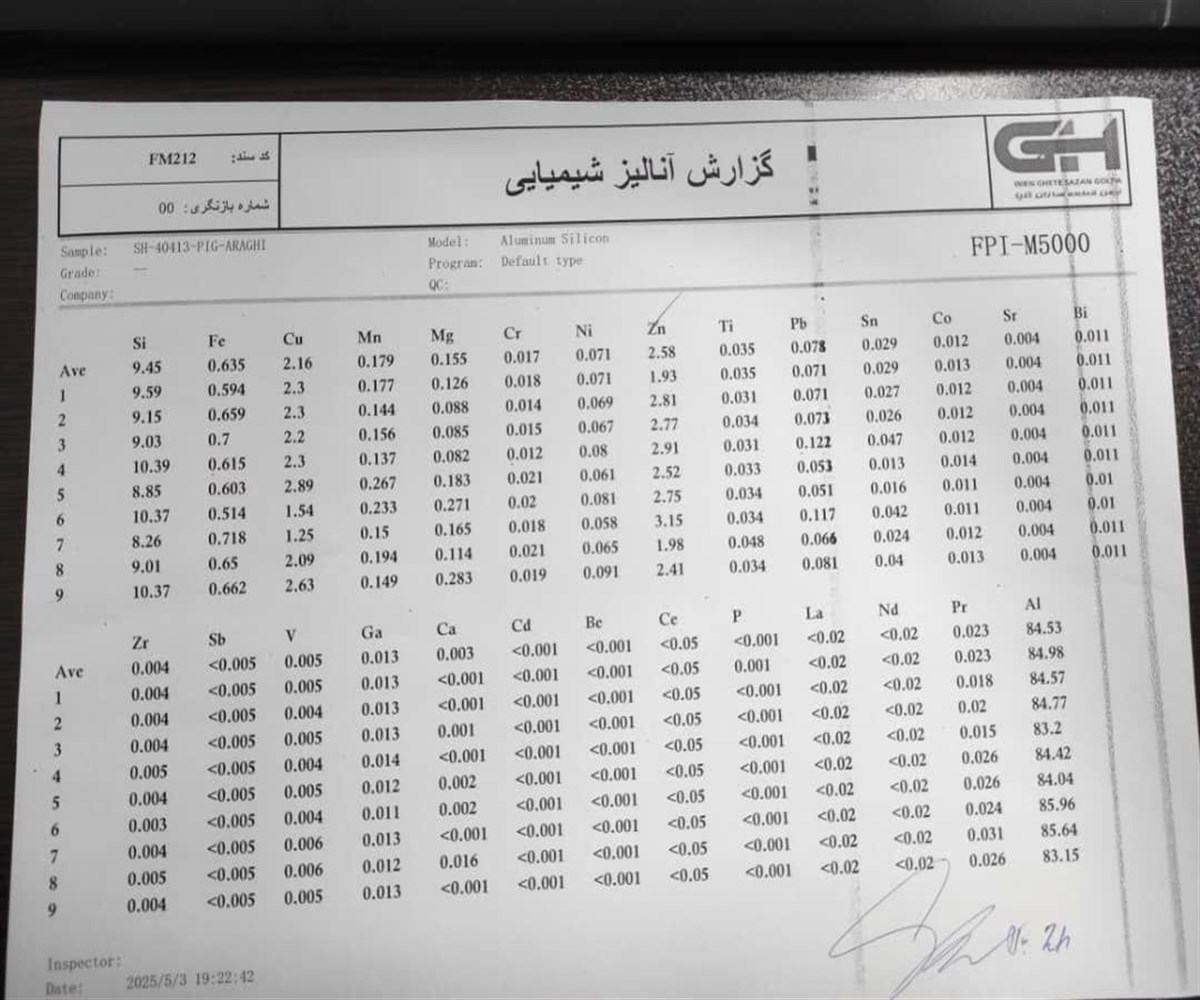 کد سند: FM212
شماره بازنگری: 00
گزارش آنالیز شیمیایی
GH
IMEN GHETE SAZAN GOLPA
Sample: SH-40413-PIG-ARAGHI
Grade: —
Company:
Model: Aluminum Silicon
Program: Default type
QC:
FPI-M5000
Si Fe Cu Mn Mg Cr Ni Zn Ti Pb Sn Co Sr Bi
Ave 9.45 0.635 2.16 0.179 0.155 0.017 0.071 2.58 0.035 0.078 0.029 0.012 0.004 0.011
1 9.59 0.594 2.3 0.177 0.126 0.018 0.071 1.93 0.035 0.071 0.029 0.013 0.004 0.011
2 9.15 0.659 2.3 0.144 0.088 0.014 0.069 2.81 0.031 0.071 0.027 0.012 0.004 0.011
3 9.03 0.7 2.2 0.156 0.085 0.015 0.067 2.77 0.034 0.073 0.026 0.012 0.004 0.011
4 10.39 0.615 2.3 0.137 0.082 0.012 0.08 2.91 0.031 0.122 0.047 0.012 0.004 0.011
5 8.85 0.603 2.89 0.267 0.183 0.021 0.061 2.52 0.033 0.053 0.013 0.014 0.004 0.011
6 10.37 0.514 1.54 0.233 0.271 0.02 0.081 2.75 0.034 0.051 0.016 0.011 0.004 0.01
7 8.26 0.718 1.25 0.15 0.165 0.018 0.058 3.15 0.034 0.117 0.042 0.011 0.004 0.01
8 9.01 0.65 2.09 0.194 0.114 0.021 0.065 1.98 0.048 0.066 0.024 0.012 0.004 0.011
9 10.37 0.662 2.63 0.149 0.283 0.019 0.091 2.41 0.034 0.081 0.04 0.013 0.004 0.011
Zr Sb V Ga Ca Cd Be Ce P La Nd Pr Al
Ave 0.004 <0.005 0.005 0.013 0.003 <0.001 <0.001 <0.05 <0.001 <0.02 <0.02 0.023 84.53
1 0.004 <0.005 0.005 0.013 <0.001 <0.001 <0.001 <0.05 0.001 <0.02 <0.02 0.023 84.98
2 0.004 <0.005 0.004 0.013 <0.001 <0.001 <0.001 <0.05 <0.001 <0.02 <0.02 0.018 84.57
3 0.004 <0.005 0.005 0.013 0.001 <0.001 <0.001 <0.05 <0.001 <0.02 <0.02 0.02 84.77
4 0.005 <0.005 0.004 0.014 <0.001 <0.001 <0.001 <0.05 <0.001 <0.02 <0.02 0.015 83.2
5 0.004 <0.005 0.005 0.012 0.002 <0.001 <0.001 <0.05 <0.001 <0.02 <0.02 0.026 84.42
6 0.003 <0.005 0.004 0.011 0.002 <0.001 <0.001 <0.05 <0.001 <0.02 <0.02 0.026 84.04
7 0.004 <0.005 0.006 0.013 <0.001 <0.001 <0.001 <0.05 <0.001 <0.02 <0.02 0.024 85.96
8 0.005 <0.005 0.006 0.012 0.016 <0.001 <0.001 <0.05 <0.001 <0.02 <0.02 0.031 85.64
9 0.004 <0.005 0.005 0.013 <0.001 <0.001 <0.001 <0.05 <0.001 <0.02 <0.02 0.026 83.15
Inspector:
Date: 2025/5/3 19:22:42